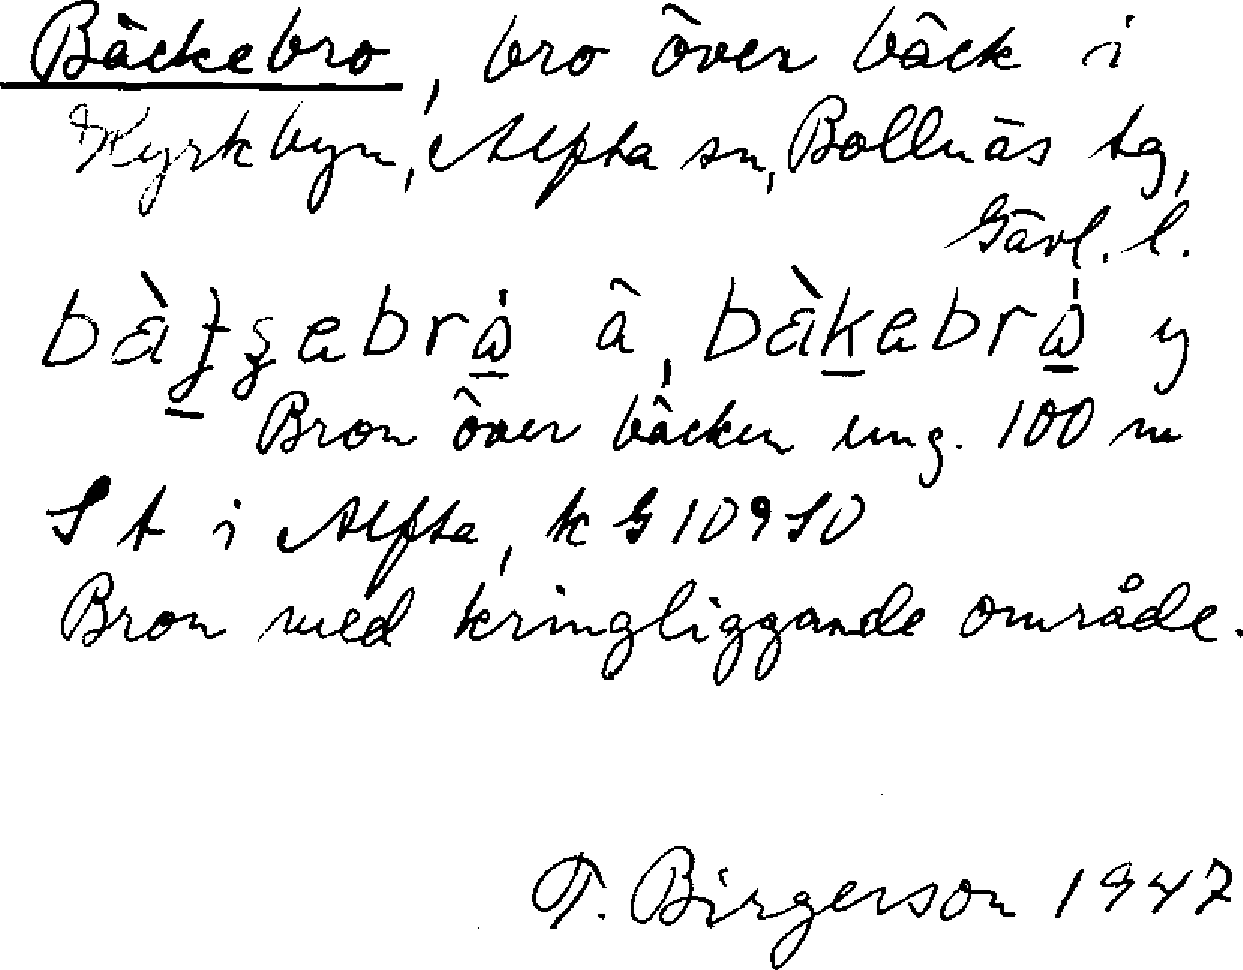 Bäckebro, bro över bäck i
Kyrkbyn, Alfta sn, Bollnäs tg,
Gävl. l.
å, y
Bron över bäcken ung. 100 m
S t i Alfta, k G 10950
Bron med kringliggande område.
T. Birgerson 1947